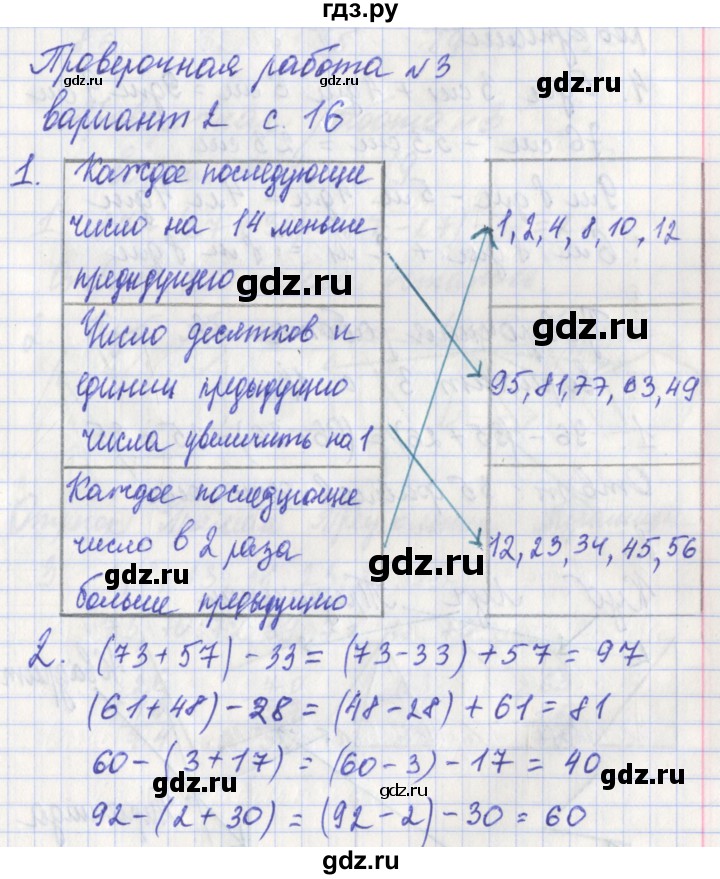 гдз.ру
Проверочная работа №3
вариант 2 с. 16
1.
Каждое последующее
число на 14 меньше
предыдущего
1, 2, 4, 8, 10, 12
Число десятков и
единиц предыдущио
числа увеличить на 1
95, 81, 77, 63, 49
Каждое последующие
число в 2 раза
больше предыдущио
12, 23, 34, 45, 56
2. (73+57)-33=(73-33)+57=97
(61+48)-28=(48-28)+61=81
60-(3+17)=(60-3)-17=40
92-(2+30)=(92-2)-30=60
gdz.ru
gdz.ru
gdz.ru
gdz.ru
gdz.ru
gdz.ru
gdz.ru
gdz.ru
gdz.ru
gdz.ru
gdz.ru
gdz.ru